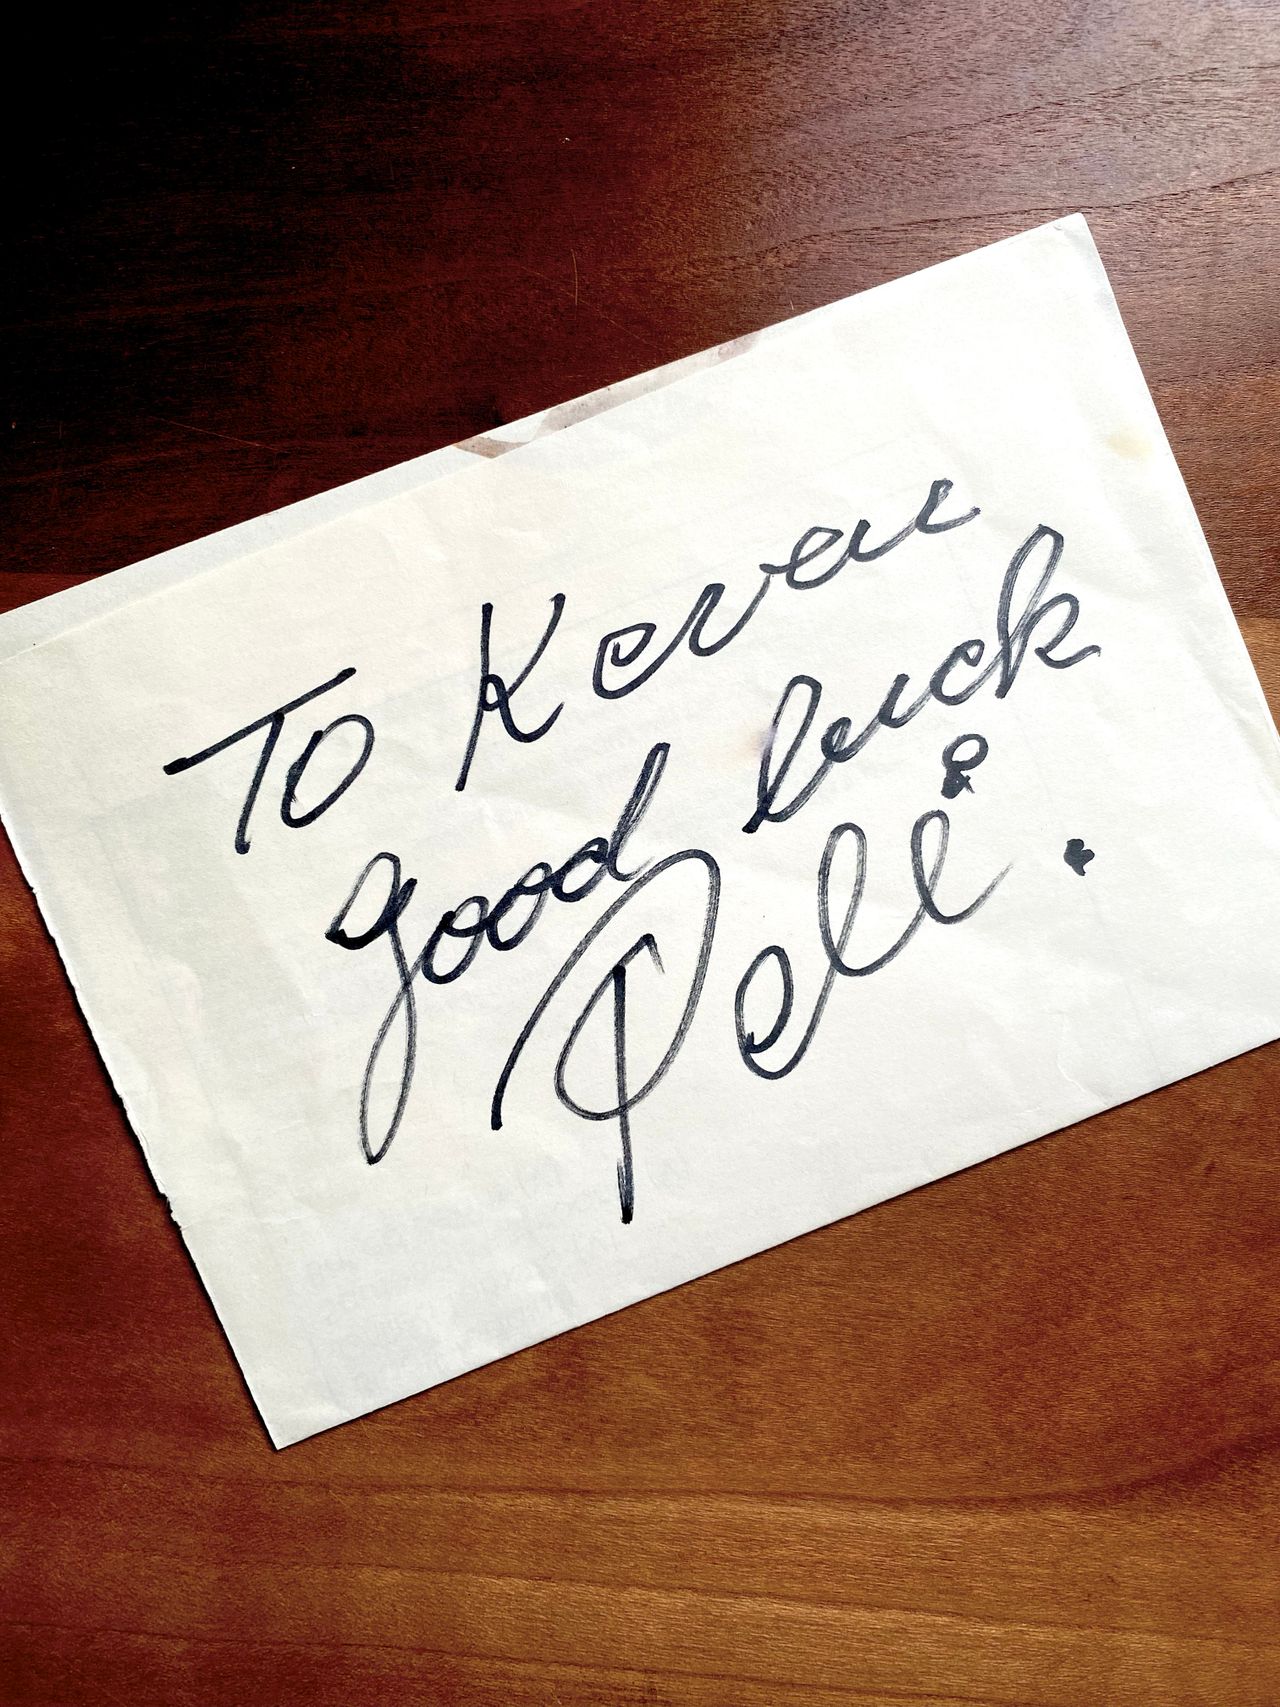 To Kevan
good luck
Pelé.